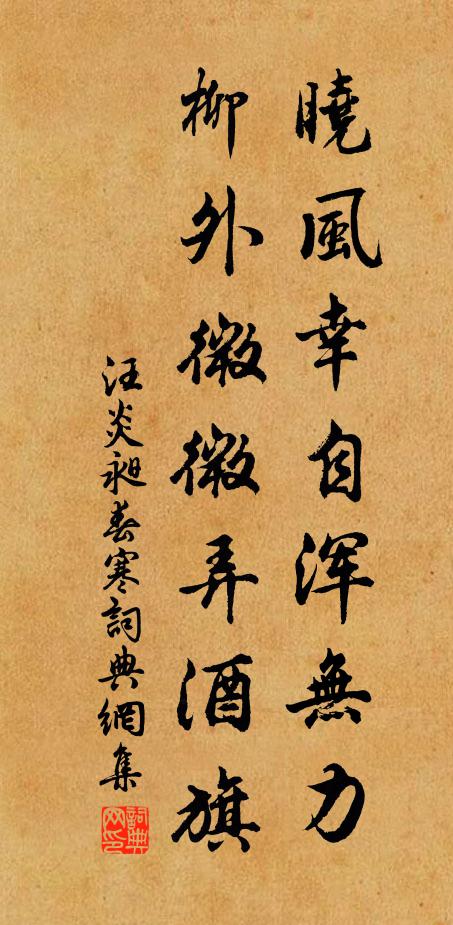 曉風幸自浑無力
柳外微微弄酒旗
汪炎昶春寒詞典網集
詞典网印